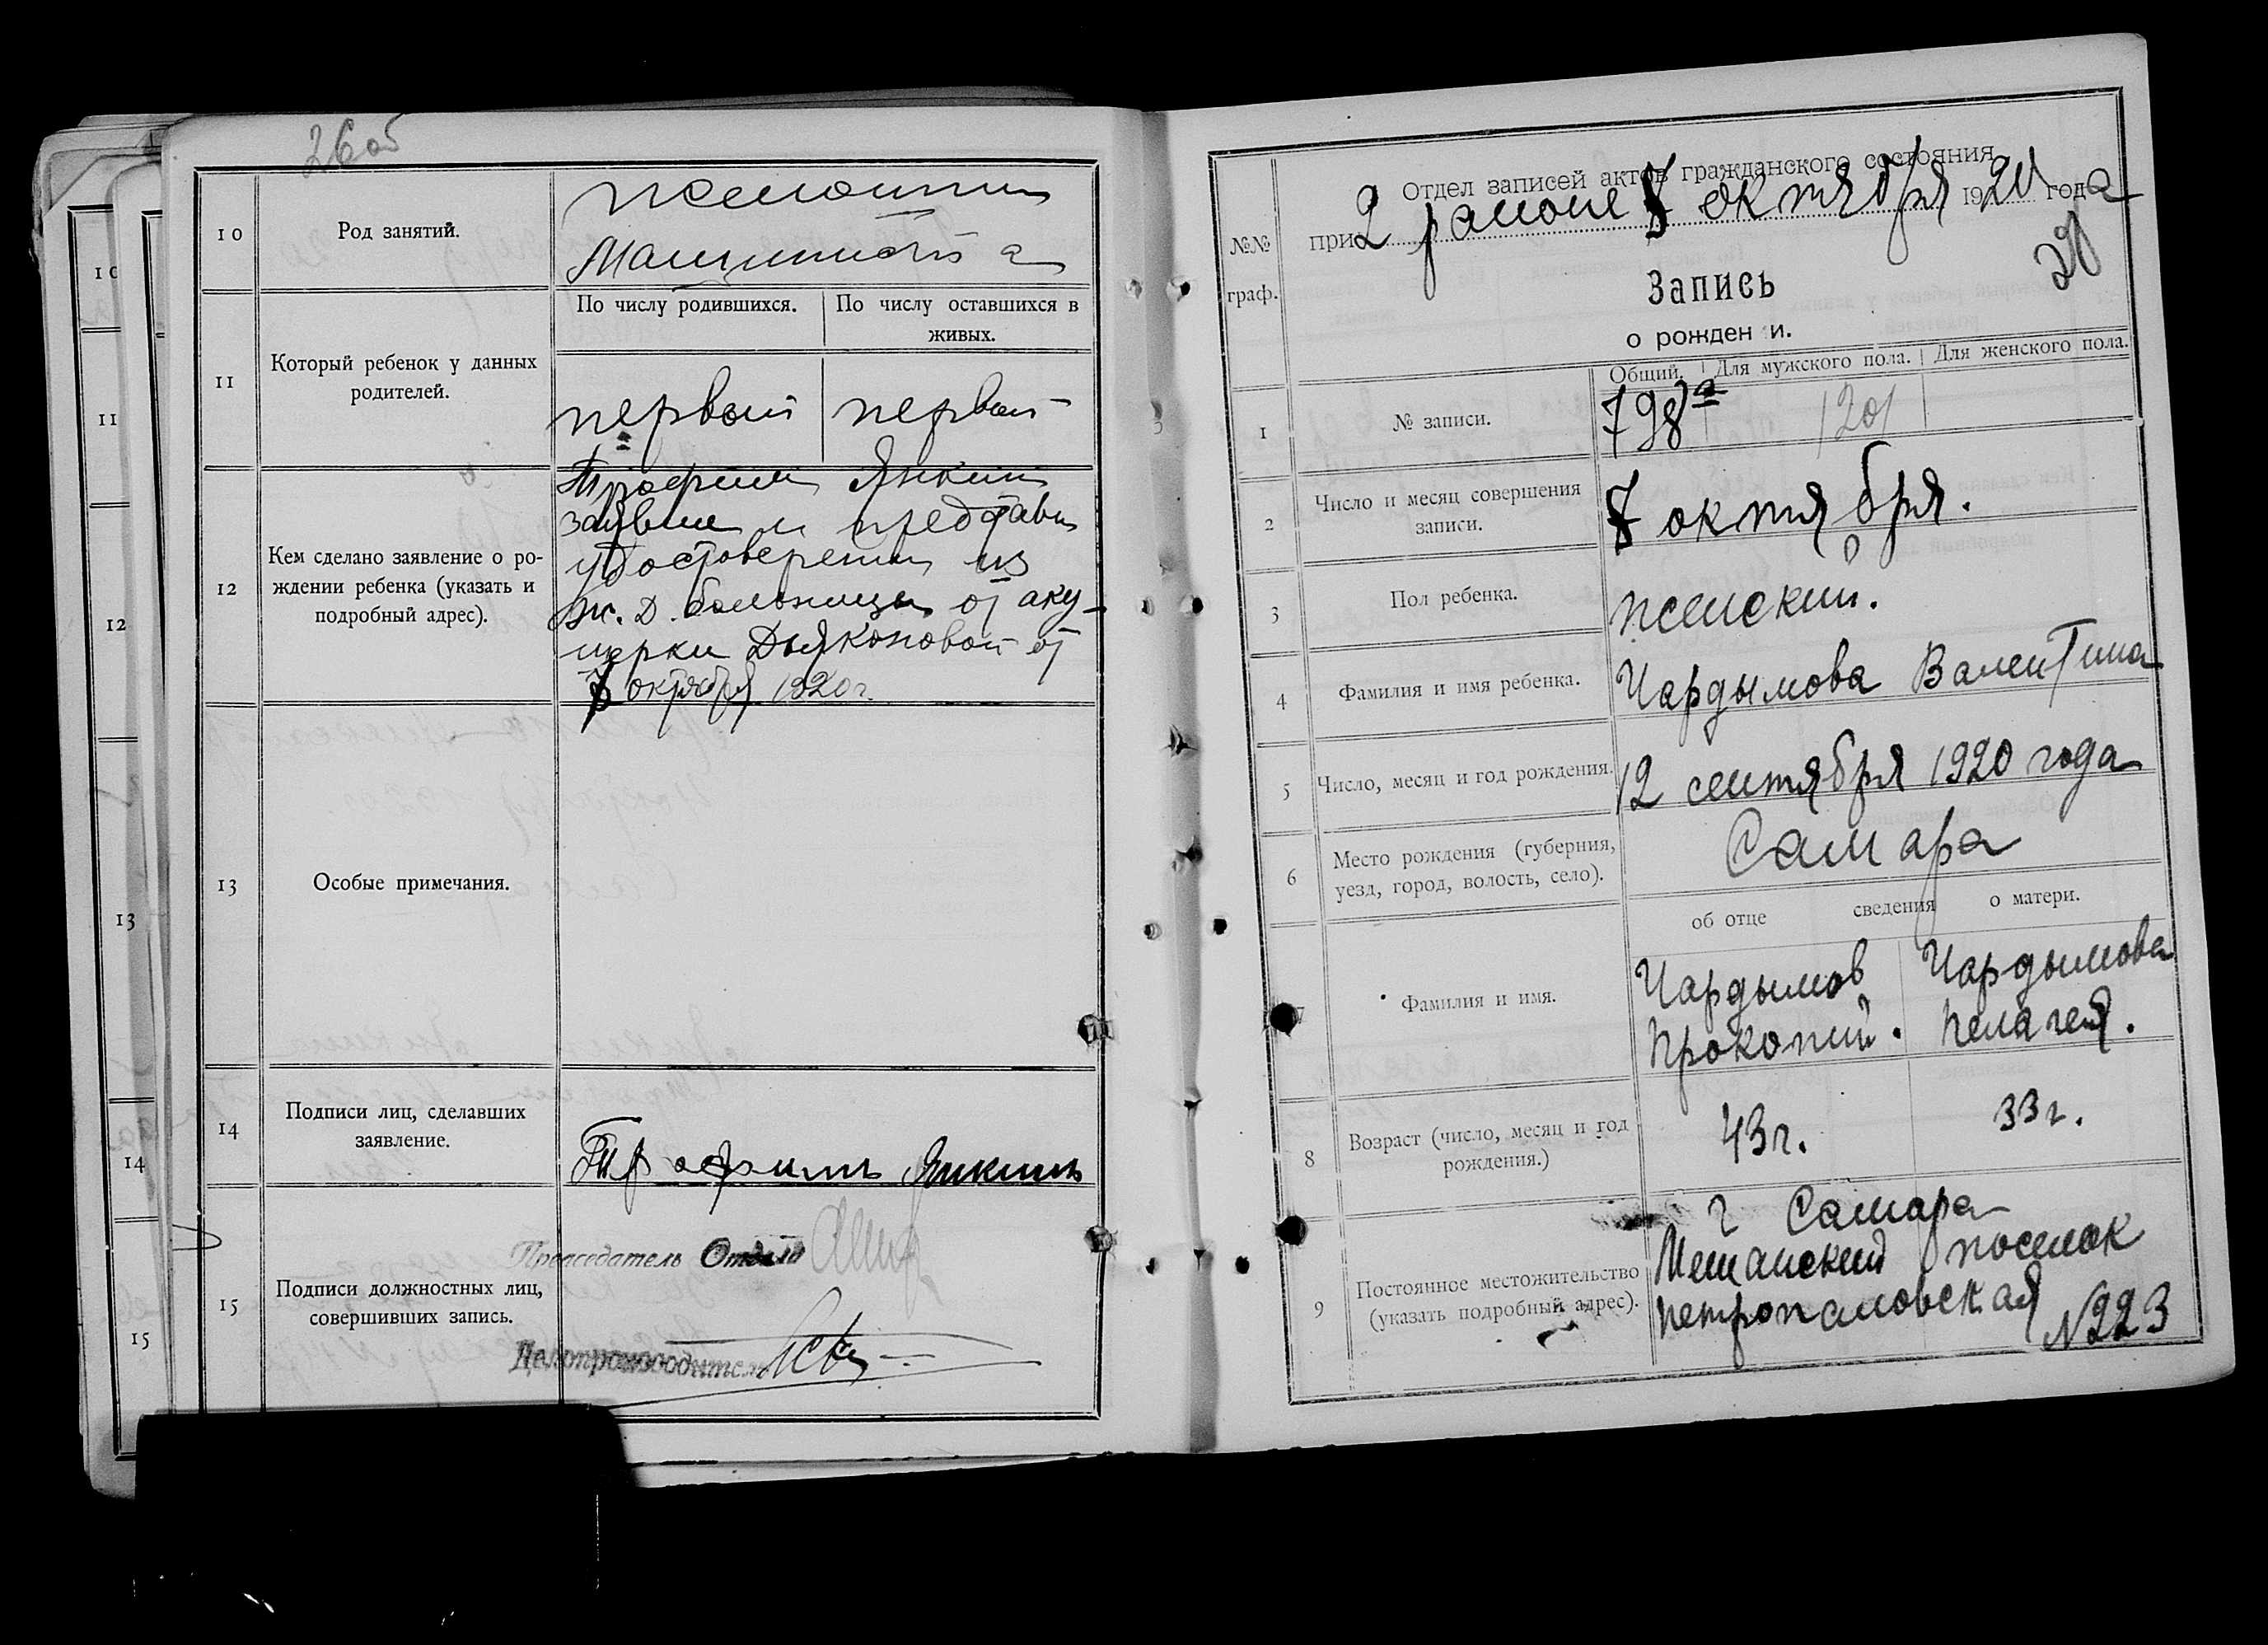 26об
10
Род занятий.
Машиниста
11
Который ребенок у данных
родителей.
По числу родившихся.
По числу оставшихся в
живых.
первый
первый
12
Кем сделано заявление о ро-
ждении ребенка (указать и
подробный адрес).
Трофим Янкин
заявил и представил
удостоверении из
ж. д. больницы от аку-
шерки Дьяконовой от
7 октября 1920 г.
13
Особые примечания.
14
Подписи лиц, сделавших
заявление.
Трофимъ Янкинъ
15
Подписи должностных лиц,
совершивших запись.
Председатель Отдела
Делопроизводитель
10
11
12
13
14
15
№№
граф.
Отдел записей актов гражданского состояния
при 2 районе 7 октября 1920 года
Запись
о рождении.
Общий.
Для мужского пола.
Для женского пола.
1
№ записи.
798а
120
2
Число и месяц совершения
записи.
7 октября.
3
Пол ребенка.
женский.
4
Фамилия и имя ребенка.
Чардымова Валентина
5
Число, месяц и год рождения.
12 сентября 1920 года
6
Место рождения (губерния,
уезд, город, волость, село).
Самара
об отце
сведения
о матери.
7
Фамилия и имя.
Чардымов
Прокопий.
Чардымова
Пелагея.
8
Возраст (число, месяц и год
рождения.)
43 г.
33 г.
9
Постоянное местожительство
(указать подробный адрес).
г Самара
Мещанский поселок
Петропавловская
№223